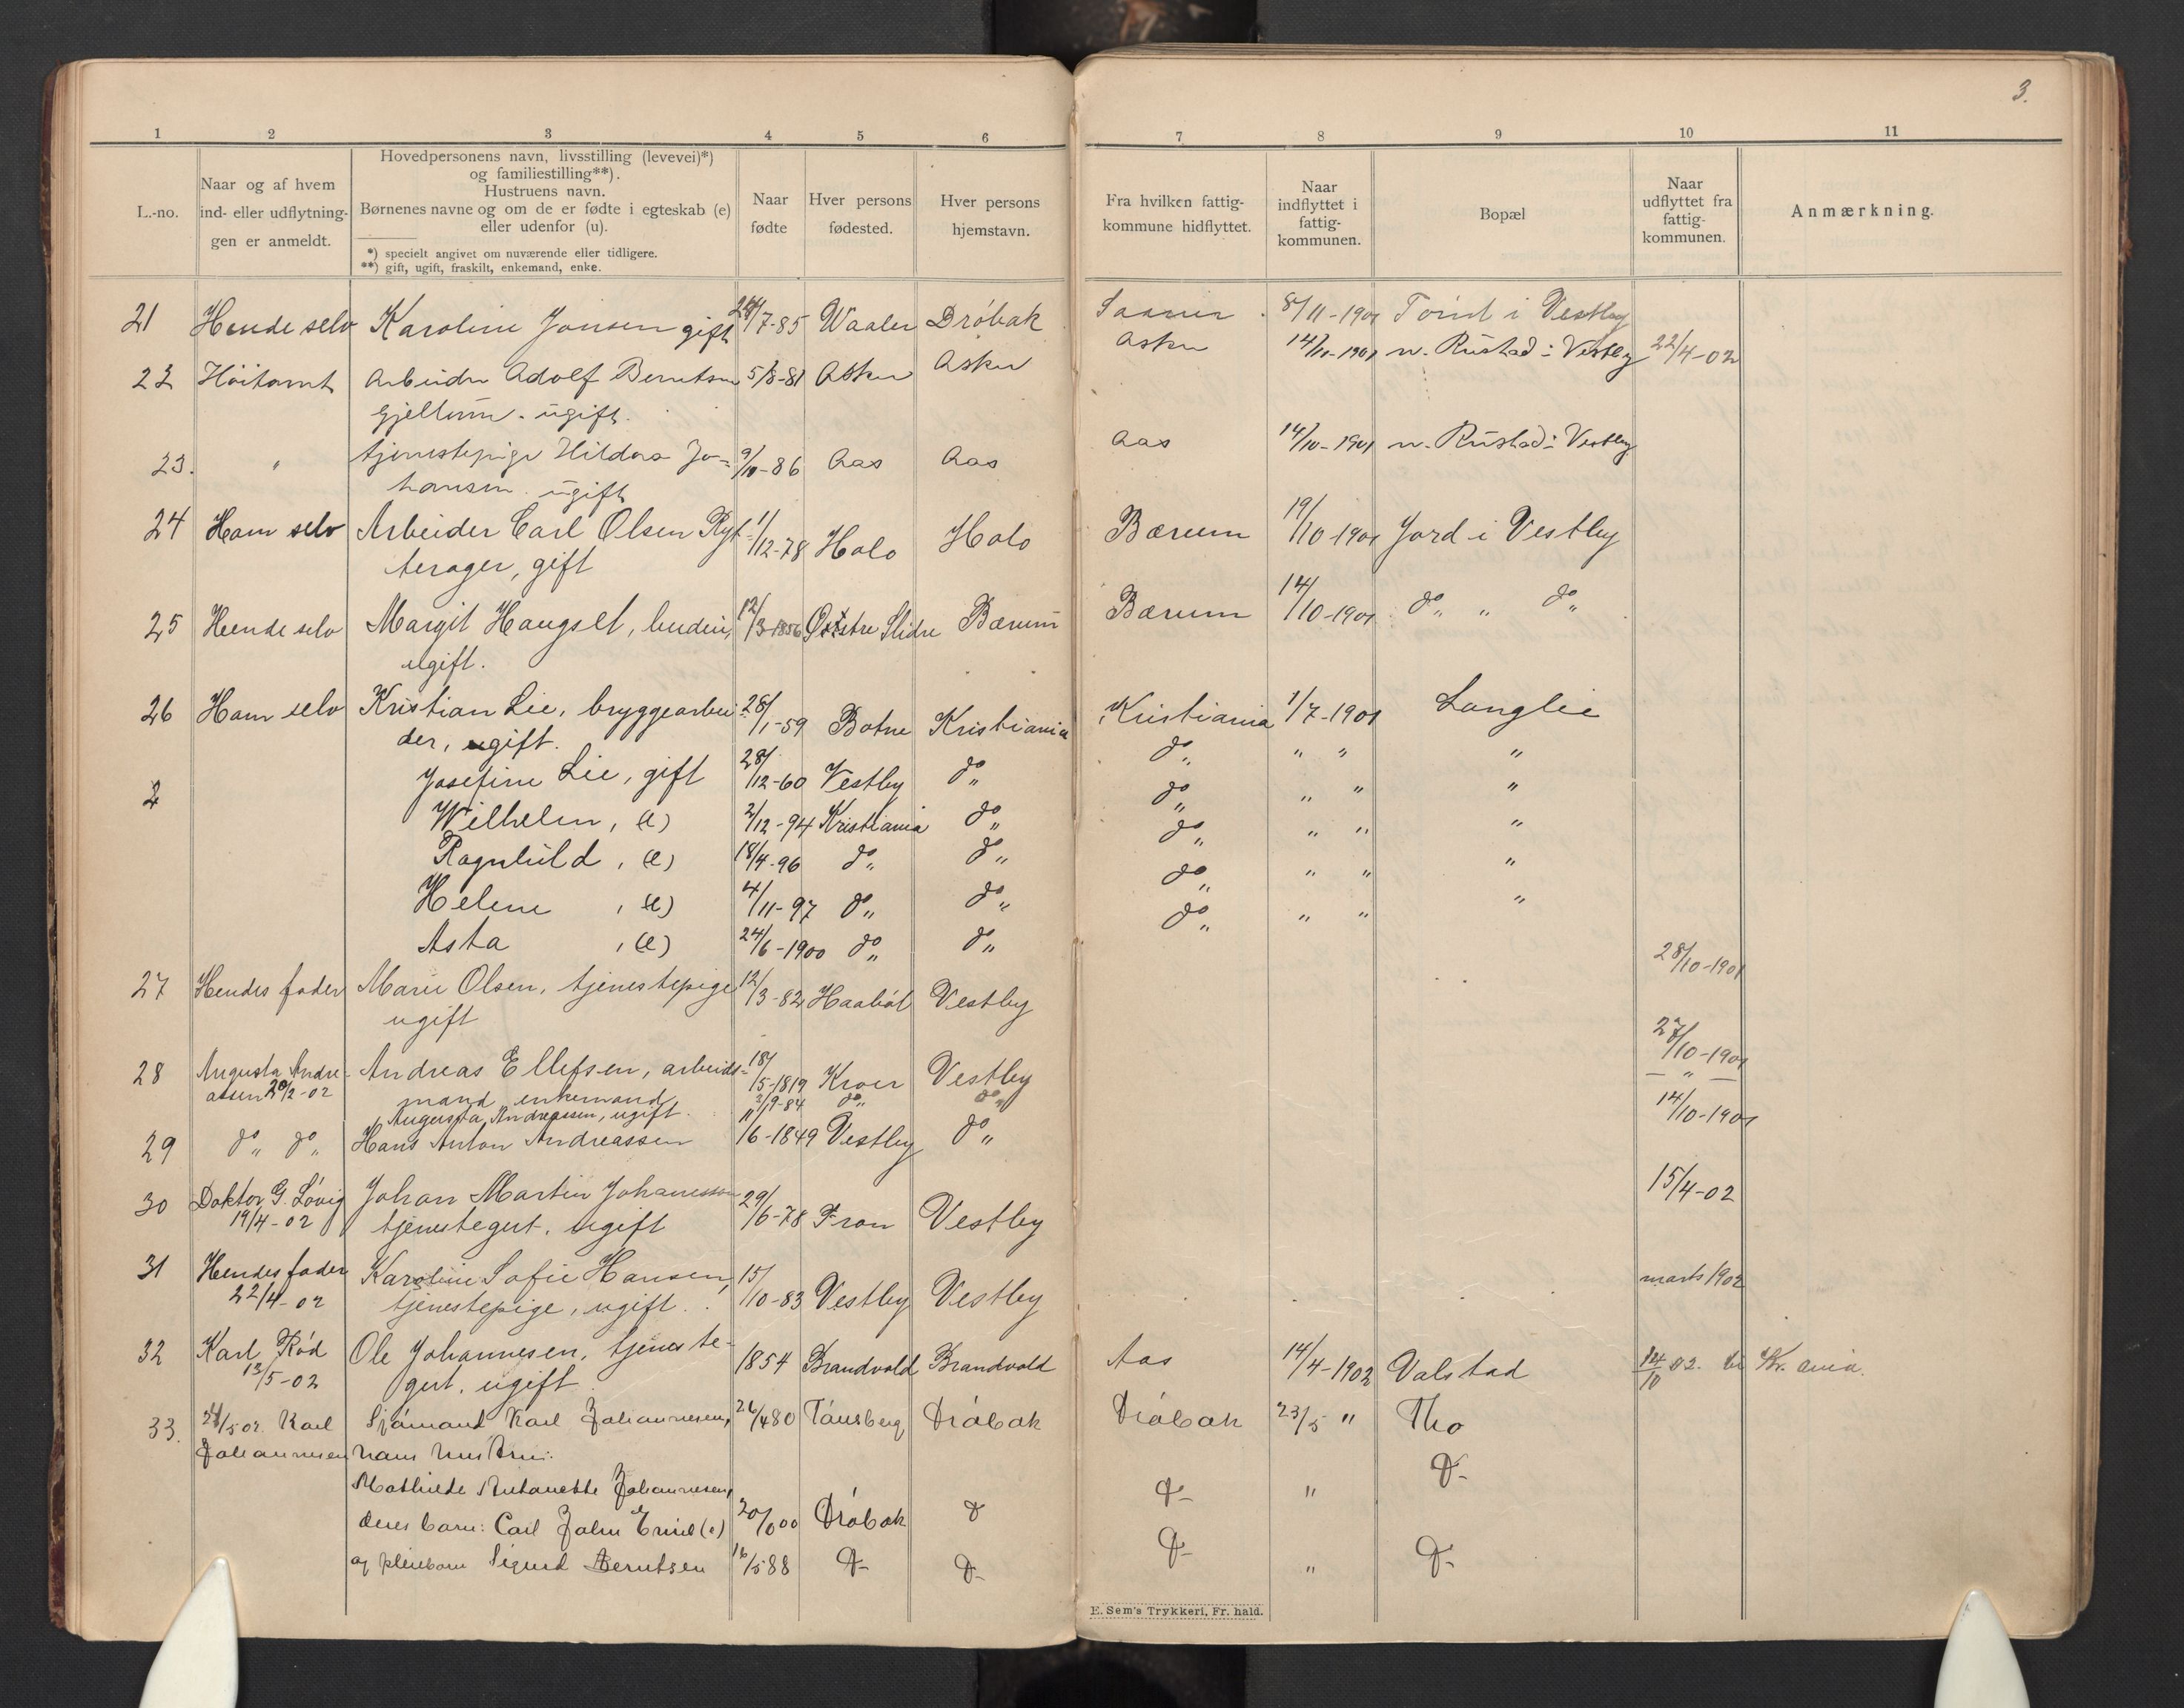 3.
1 2 3 4 5 6 7 8 9 10 11
L.-no.
Naar og af hvem
ind- eller udflytnin-
gen er anmeldt.
Hovedpersonens navn, livsstilling (levevei)*)
og familiestilling**).
Hustruens navn.
Børnenes navne og om de er fødte i egteskab (e)
eller udenfor (u).
*) specielt angivet om nuværende eller tidligere.
**) gift, ugift, fraskilt, enkemand, enke.
Naar
fødte
Hver persons
fødested.
Hver persons
hjemstavn.
Fra hvilken fattig-
kommune hidflyttet.
Naar
indflyttet i
fattig-
kommunen.
Bopæl
Naar
udflyttet fra
fattig-
kommunen.
Anmærkning.
21 Hende selv Karoline Jonsen gift /7-85 Waaler Dröbak 8/11-1901 i Vestby
22 Höitomt Arbeider Adolf Berntsen 5/8-81 Asker Asker Asker 14/11-1901 n. Rustad i Vestby 22/4-02
Gjellum. ugift.
23. " tjenestepige Hilda Jo= 9/10-86 Aas Aas Aas 14/10-1901 n. Rustad i Vestby
hansen. ugift
24 Ham selv Arbeider Carl Olsen Ryt- 1/12-78 Holo Holo Bærum 19/10-1901 Jord i Vestby
terager, gift
25 Hende selv Margit Haugset, budeie, 12/3-1856 Østre Slidre Bærum Bærum 14/10-1901 do " do
ugift.
26 Ham selv Kristian Lie, bryggearbei 28/1-59 Botne Kristiania Kristiania 1/7-1901 Langlie
der, ugift.
Josefine Lie, gift 28/12-60 Vestby do do " " "
2 Wilhelm, (e) 2/12-94 Kristiania do do " " "
Ragnhild, (e) 18/4-96 do do do " " "
Helene, (e) 4/11-97 do do do " " "
Asta, (e) 24/6-1900 do do do " " "
27 Hendes fader Marie Olsen, tjenestepige 12/3-82 Haaböl Vestby 28/10-1901
ugift
28 Augusta Andre- Andreas Ellefsen, arbeids- 18/5-1819 Kroer Vestby 27/10-1901
assen 20/2-02 mand enkemand
Augusta Andreassen, ugift. 2/9-84 do do — " —
29 do do Hans Anton Andreassen 11/6-1849 Vestby do 14/10-1901
30 Doktor G. Lövig Johan Martin Johanessen 29/6-78 Fron Vestby 15/4-02
19/4-02 tjenestegut, ugift
31 Hendes fader Karoline Sofie Hansen, 15/10-83 Vestby Vestby marts 1902
22/4-02 tjenestepige, ugift.
32 Karl Röd Ole Johannesen, tjeneste- 1854 Brandvold Brandvold Aas 14/4-1902 Valstad 14/10 02. til Kr.ania.
13/5-02 gut, ugift
33. 24/5 02. Karl Sjömand Karl Johannesen, 26/4 80 Tönsberg Dröbak Dröbak 23/5 " Tho
Johannesen hans hustru:
Mathilde Antonette Johannesen,
deres barn: Carl Johan Emil (e) 20/ 00 Dröbak
og pleiebarn Sigurd Berntsen 16/5 88
E. Sem's Trykkeri, Fr. hald.